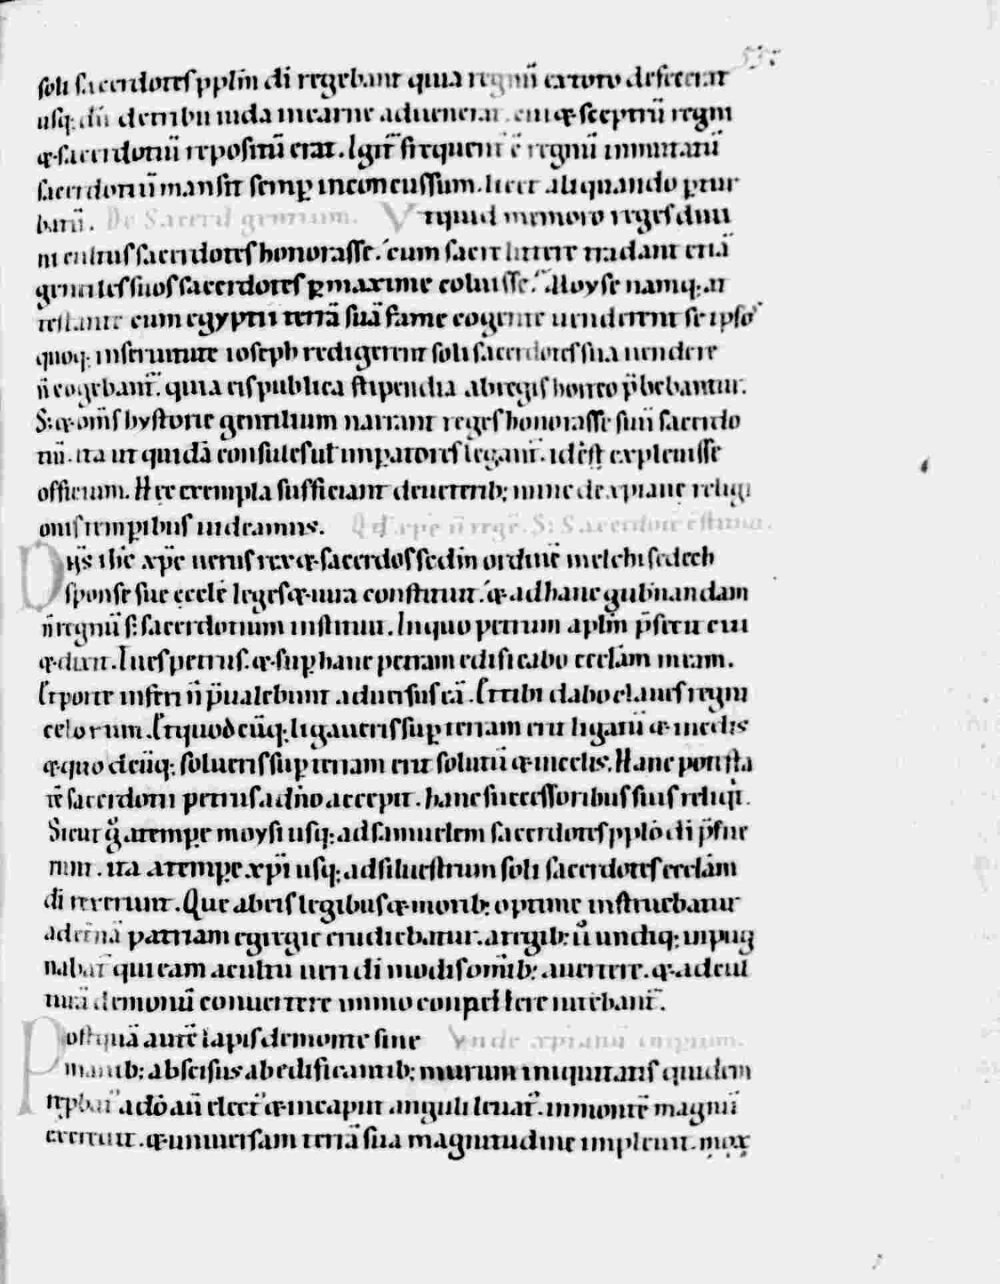 537
soli sacerdotes pplm̄ di regebant quia regnū ex toto defecerat
usq; dū de tribu iuda in carne aduenerat. cui & sceptrū regni
& sacerdotiū repositū erat. Igit̄ frequent̄ ē regnū inmutatū
sacerdotiū mansit semp inconcussum. licet aliquando ptur
batū. De Sacerd gentium. Vt quid memoro reges diui
ni cultus sacerdotes honorasse. cum sacre littere tradant etiā
gentiles suos sacerdotes p maxime coluisse. Moyse namq; at
testante cum egyptii terrā suā fame cogente uenderent se ipsos
quoq; in seruitute ioseph redigerent soli sacerdotes sua uendere
n̄ cogebant̄. quia eis publica stipendia ab regis horreo p̄bebantur.
S; & om̄s hystorie gentilium narrant reges honorasse suū sacerdo
tiū. ita ut quidā consules uł impatores legant̄. id ēst expleuisse
officium. Hec exempla sufficiant de ueterib; nunc de xpiane religi
onis tempibus uideamus. Qd xpc n̄ regē. S; Sacerdotē cstitua.
Dn̄s ihc̄ xpc̄ uerus rex & sacerdos scdm̄ ordinē melchisedech
sponse sue ecclē leges & iura constituit. & ad hanc gub̄nandam
n̄ regnū s; sacerdotium instituit. In quo petrum aplm̄ p̄fecit cui
& dixit. Tu es petrus. & sup hanc petram edificabo ecclām meam.
Et porte inferi n̄ p̄ualebunt aduersus eā. Et tibi dabo claues regni
celorum. Et quodcūq; ligaueris sup terram erit ligatū & in celis
& quodcūq; solueris sup terram erit solutū & in celis. Hanc potesta
tē sacerdotii petrus a dn̄o accepit. hanc successoribus suis reliqt.
Sicut g̊ a tempe moysi usq; ad samuelem sacerdotes pplō di p̄fue
runt. ita a tempe xpi usq; ad siluestrum soli sacerdotes ecclām
di rexerunt. Que ab eis legibus & morib; optime instruebatur
ad et̄nā patriam egregie erudiebatur. a regib; ů undiq; inpug
nabat̄ qui eam a cultu ueri di modis om̄ib; auertere. & ad cul
turā demonū conuertere immo conpellere nitebant̄.
Postquā autē lapis de monte sine Vnde xpianū imperium.
manib; abscisus ab edificantib; murum iniquitatis quidem
repbat̄ a dō aū elect̄ & in caput anguli leuat̄. in montē magnū
excreuit. & uniuersam terrā sua magnitudine impleuit. mox